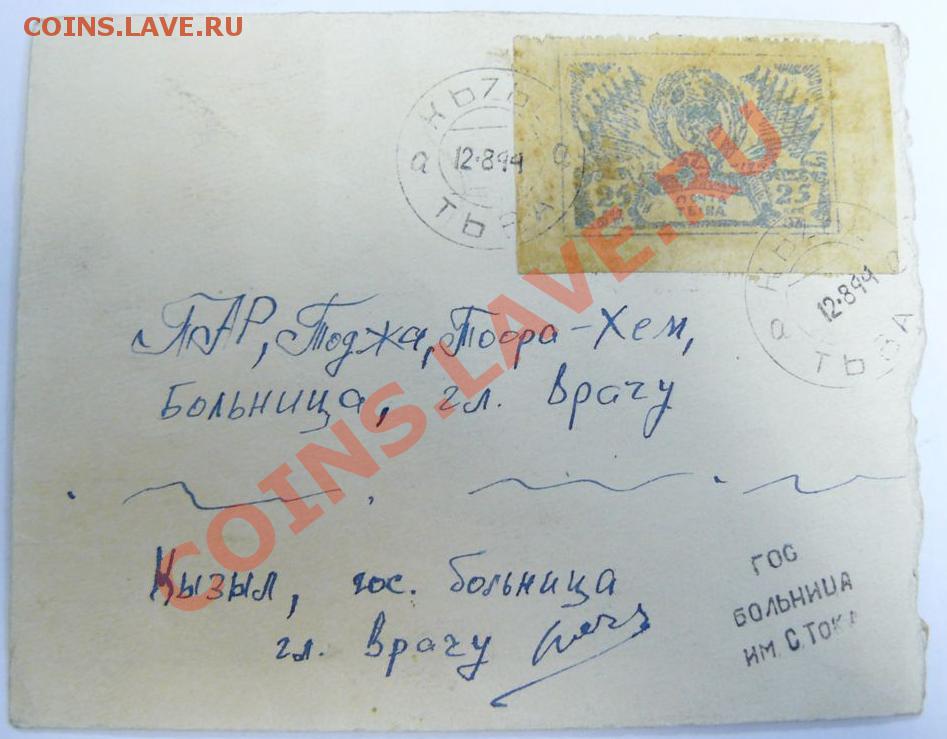 COINS.LAVE.RU
КЫЗЫЛ
а 12·8·44 а
ТЫВА
25 ПОЧТА 25
ТЫВА
а 12·8·44 а
ТЫВА
ТАР, Тоджа, Тоора-Хем,
Больница, гл. врачу
Кызыл, гос. больница
гл. врачу
ГОС
БОЛЬНИЦА
ИМ. С. ТОКА
COINS.LAVE.RU